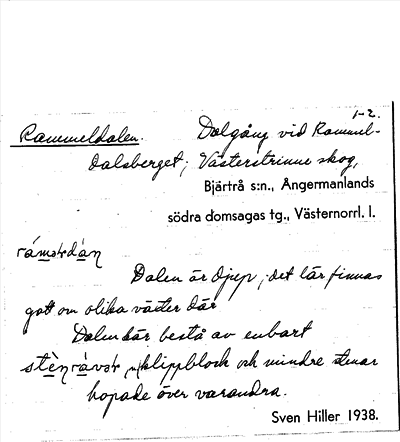 1-2.
Rammeldalen. Dalgång vid Rammel-
dalsberget; Västerstrinne skog,
Bjärtrå s:n., Ångermanlands
södra domsagas tg., Västernorrl. l.
Dalen är djup, det lär finnas
gott om olika växter där
Dalen här bestå av enbart
klippblock och mindre stenar
hopade över varandra.
Sven Hiller 1938.